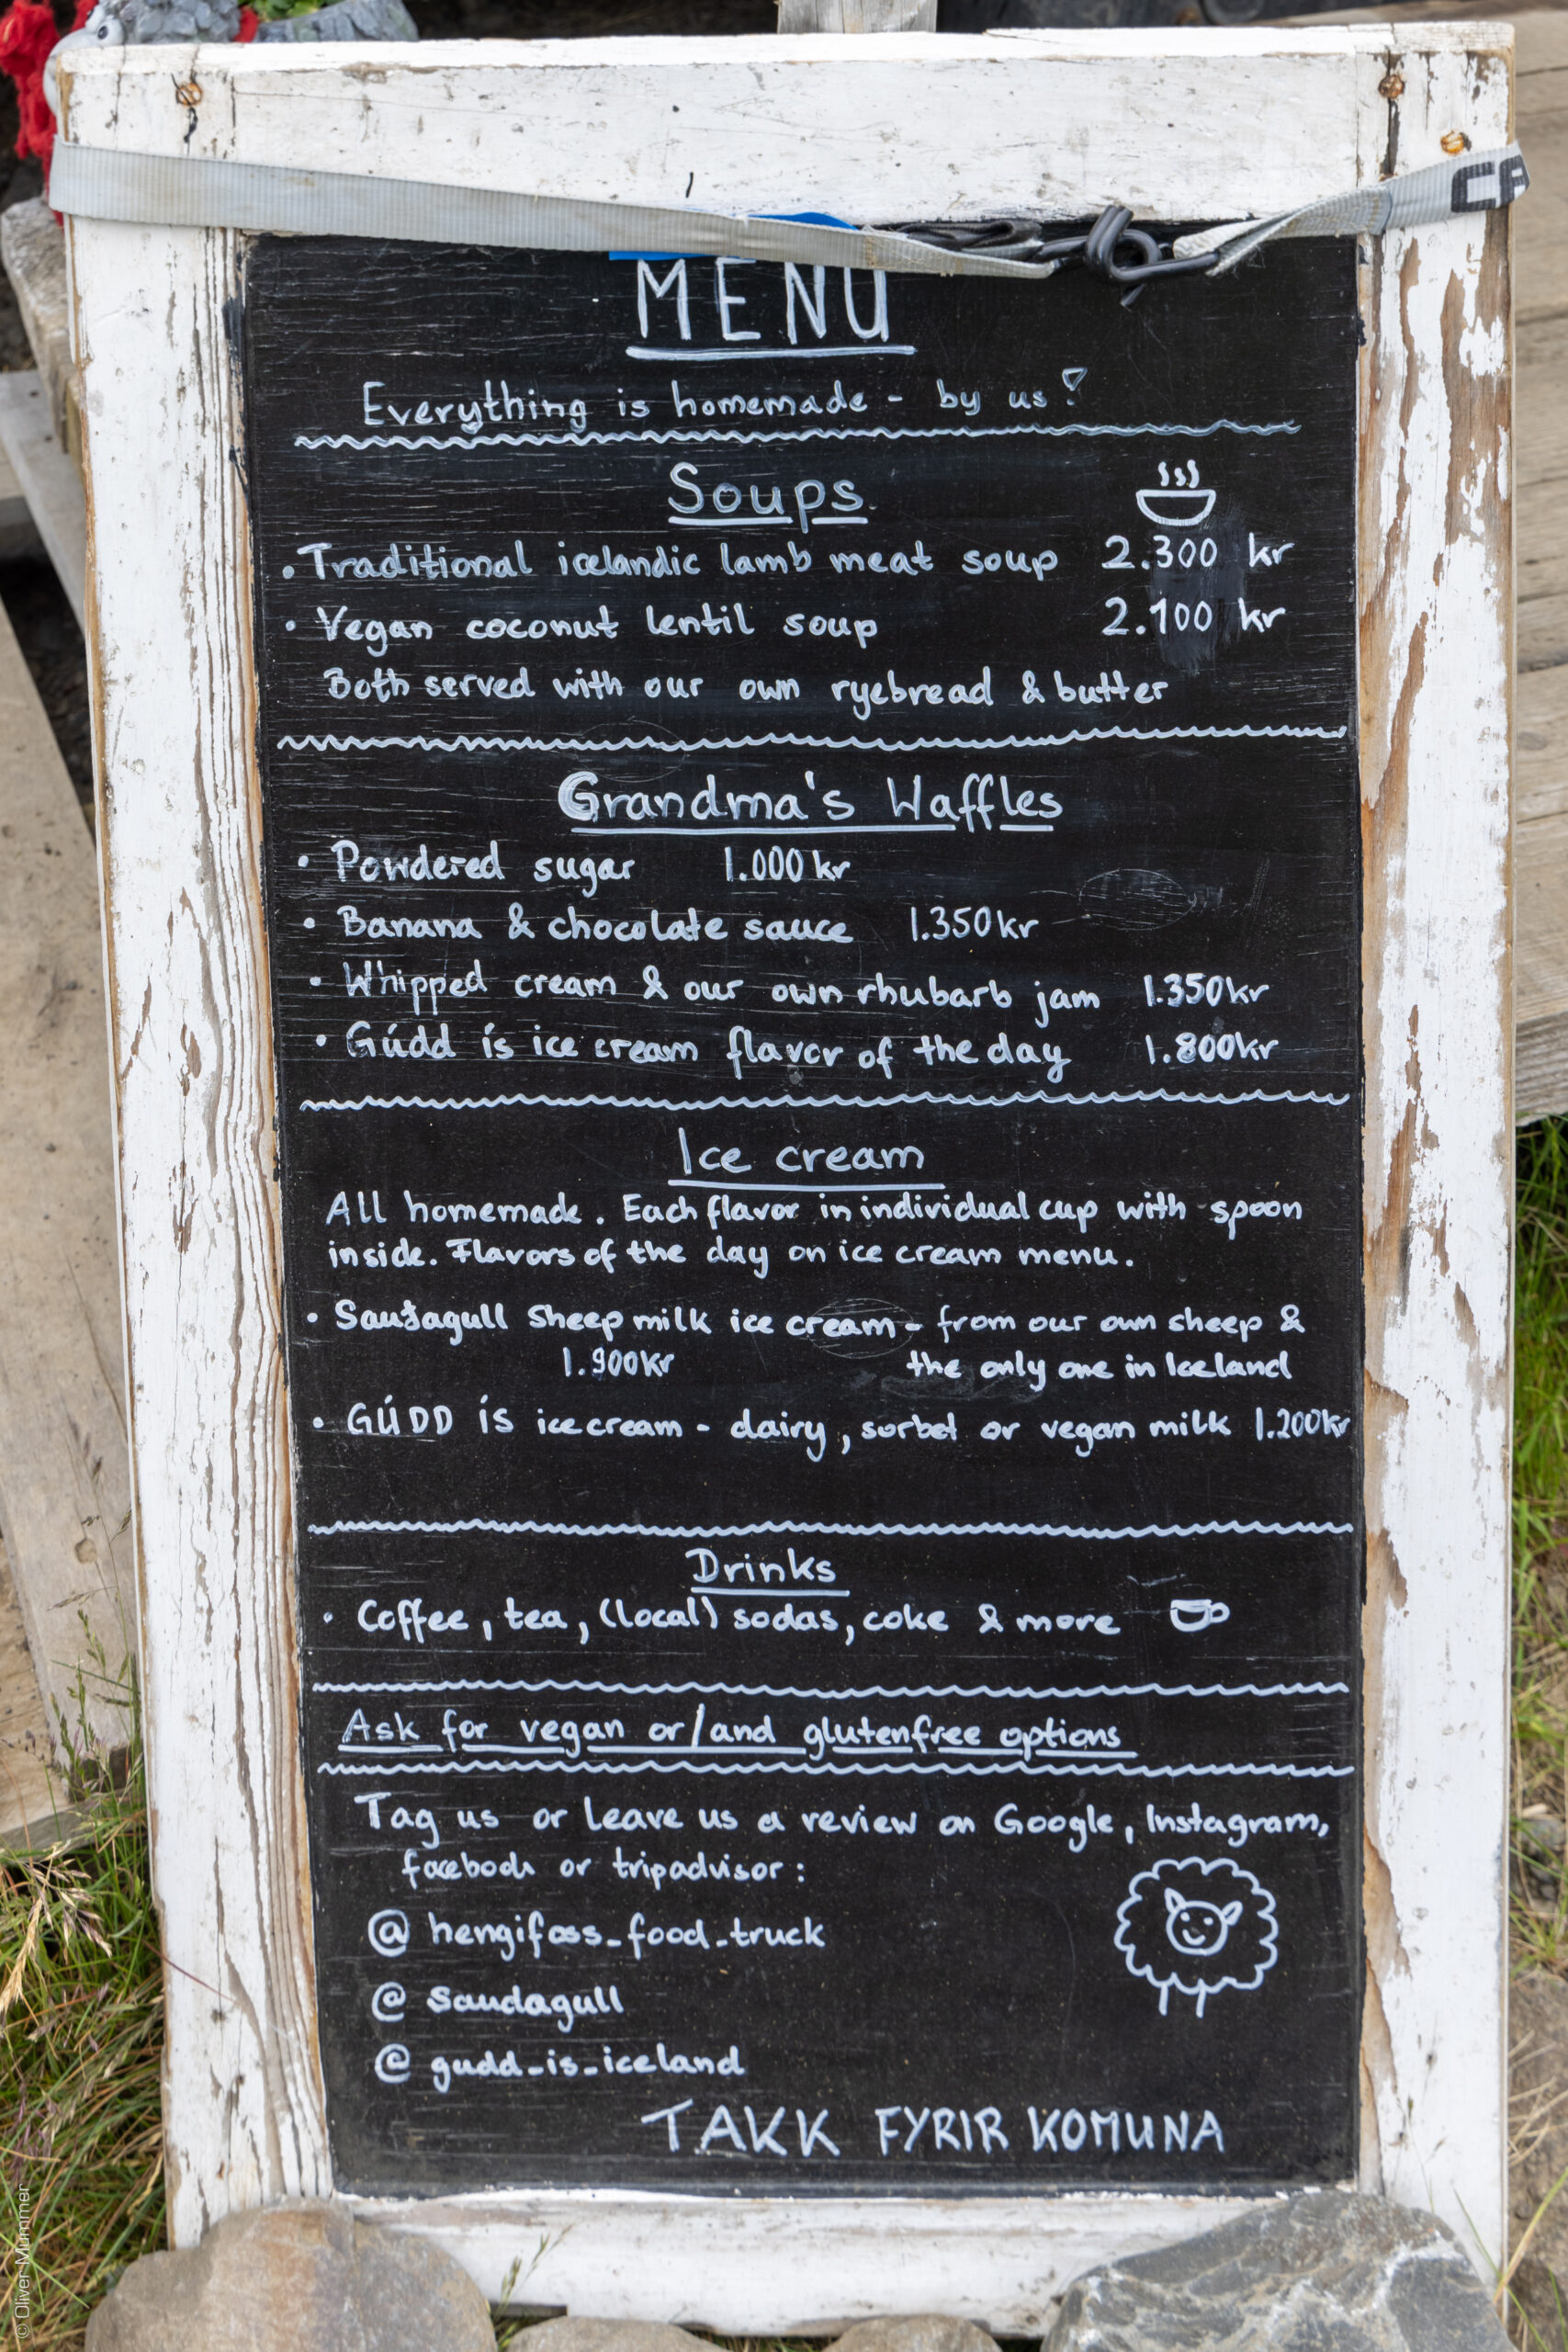 CA
MENU
Everything is homemade - by us!
Soups
• Traditional icelandic lamb meat soup 2.300 kr
• Vegan coconut lentil soup 2.100 kr
Both served with our own ryebread & butter
Grandma's Waffles
• Powdered sugar 1.000 kr
• Banana & chocolate sauce 1.350 kr
• Whipped cream & our own rhubarb jam 1.350 kr
• Gúdd ís ice cream flavor of the day 1.800 kr
Ice cream
All homemade. Each flavor in individual cup with spoon
inside. Flavors of the day on ice cream menu.
• Sauðagull Sheep milk ice cream - from our own sheep &
1.900 kr the only one in Iceland
• GÚDD ÍS ice cream - dairy, sorbet or vegan milk 1.200 kr
Drinks
• Coffee, tea, (local) sodas, coke & more
Ask for vegan or/and glutenfree options
Tag us or leave us a review on Google, Instagram,
facebook or tripadvisor:
@ hengifoss_food_truck
@ saudagull
@ gudd_is_iceland
TAKK FYRIR KOMUNA
© Oliver Mummer